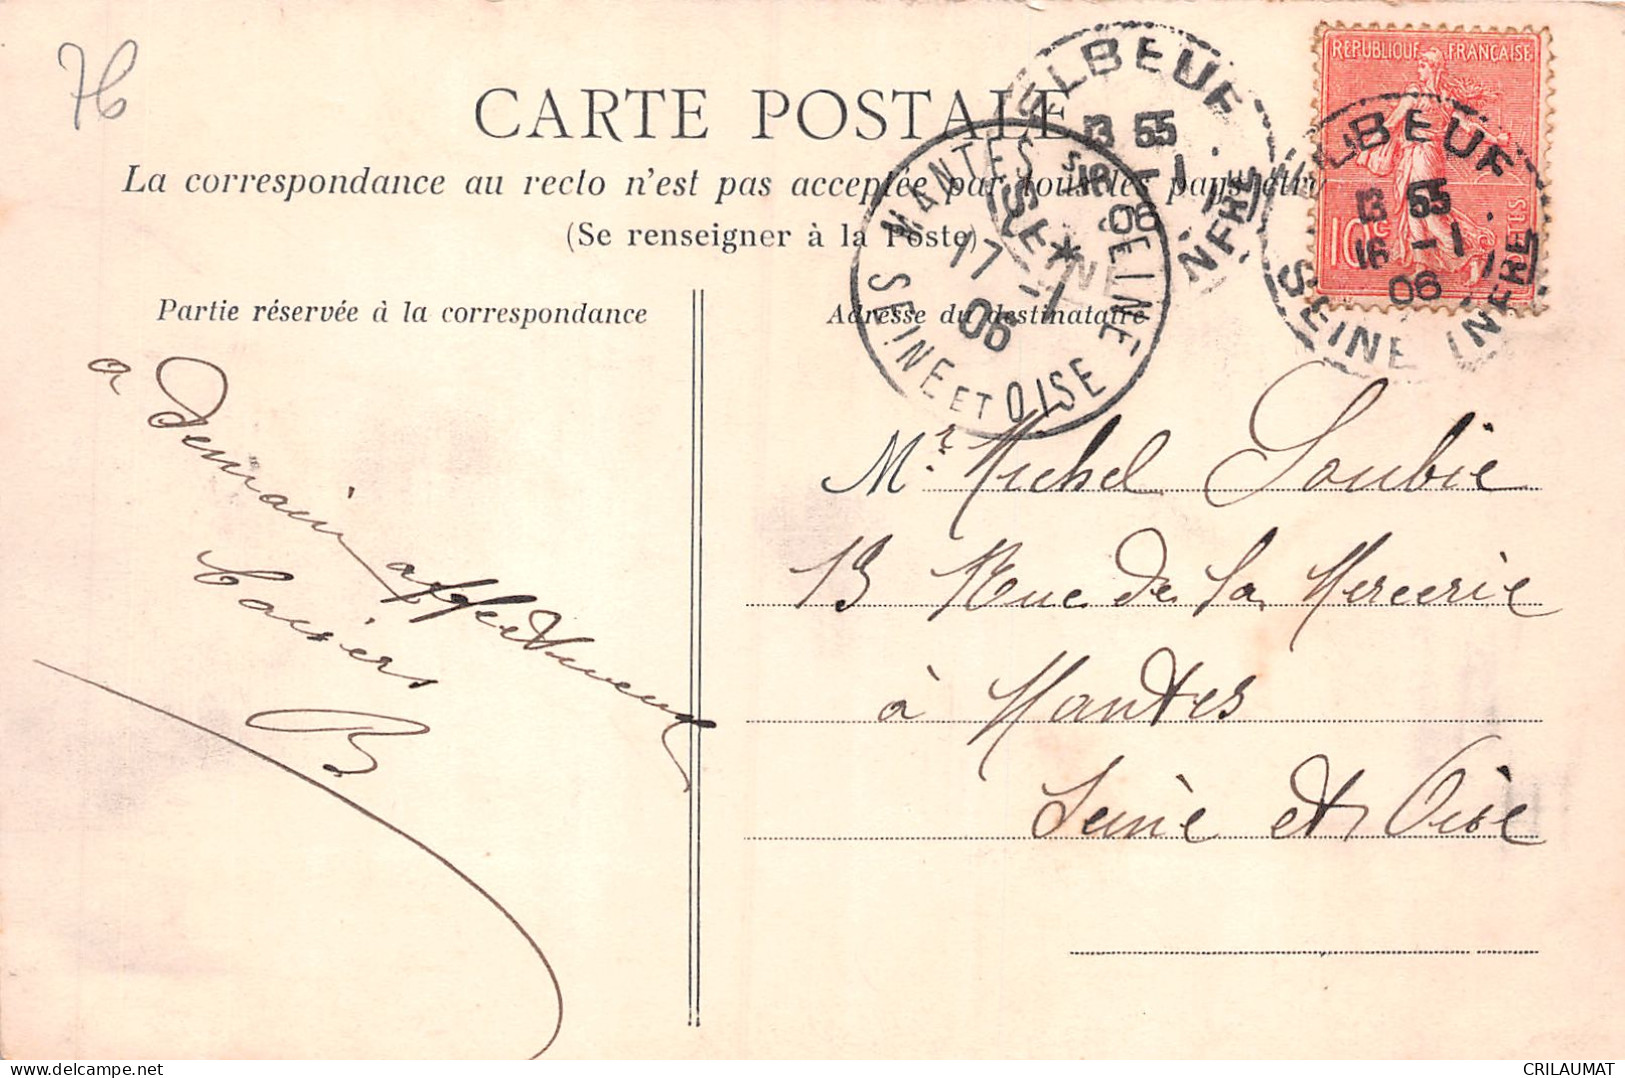 76
CARTE POSTALE
La correspondance au recto n'est pas acceptée par tous les pays étrangers
(Se renseigner à la Poste)
Partie réservée à la correspondance
Adresse du destinataire
a Demain affectueux
Baisers
B
Mr. Michel Soubie
13 Rue de la Mercerie
à Mantes
Seine et Oise
REPUBLIQUE FRANÇAISE
10c POSTES
ELBEUF
13 55
16 -1
06
SEINE INFRE
ELBEUF
13 55
16 -1
06
SEINE INFRE
MANTES S SEINE
17 -1
06
SEINE ET OISE
CRILAUMAT